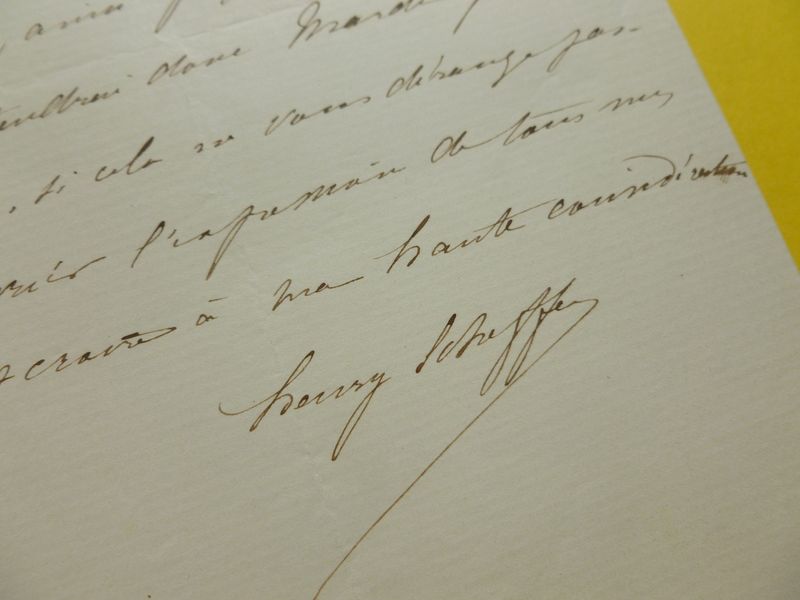 donc Mardi
, si cela ne vous dérange pas
l'expression de tous mes
croire à ma haute considération
henry Scheffer